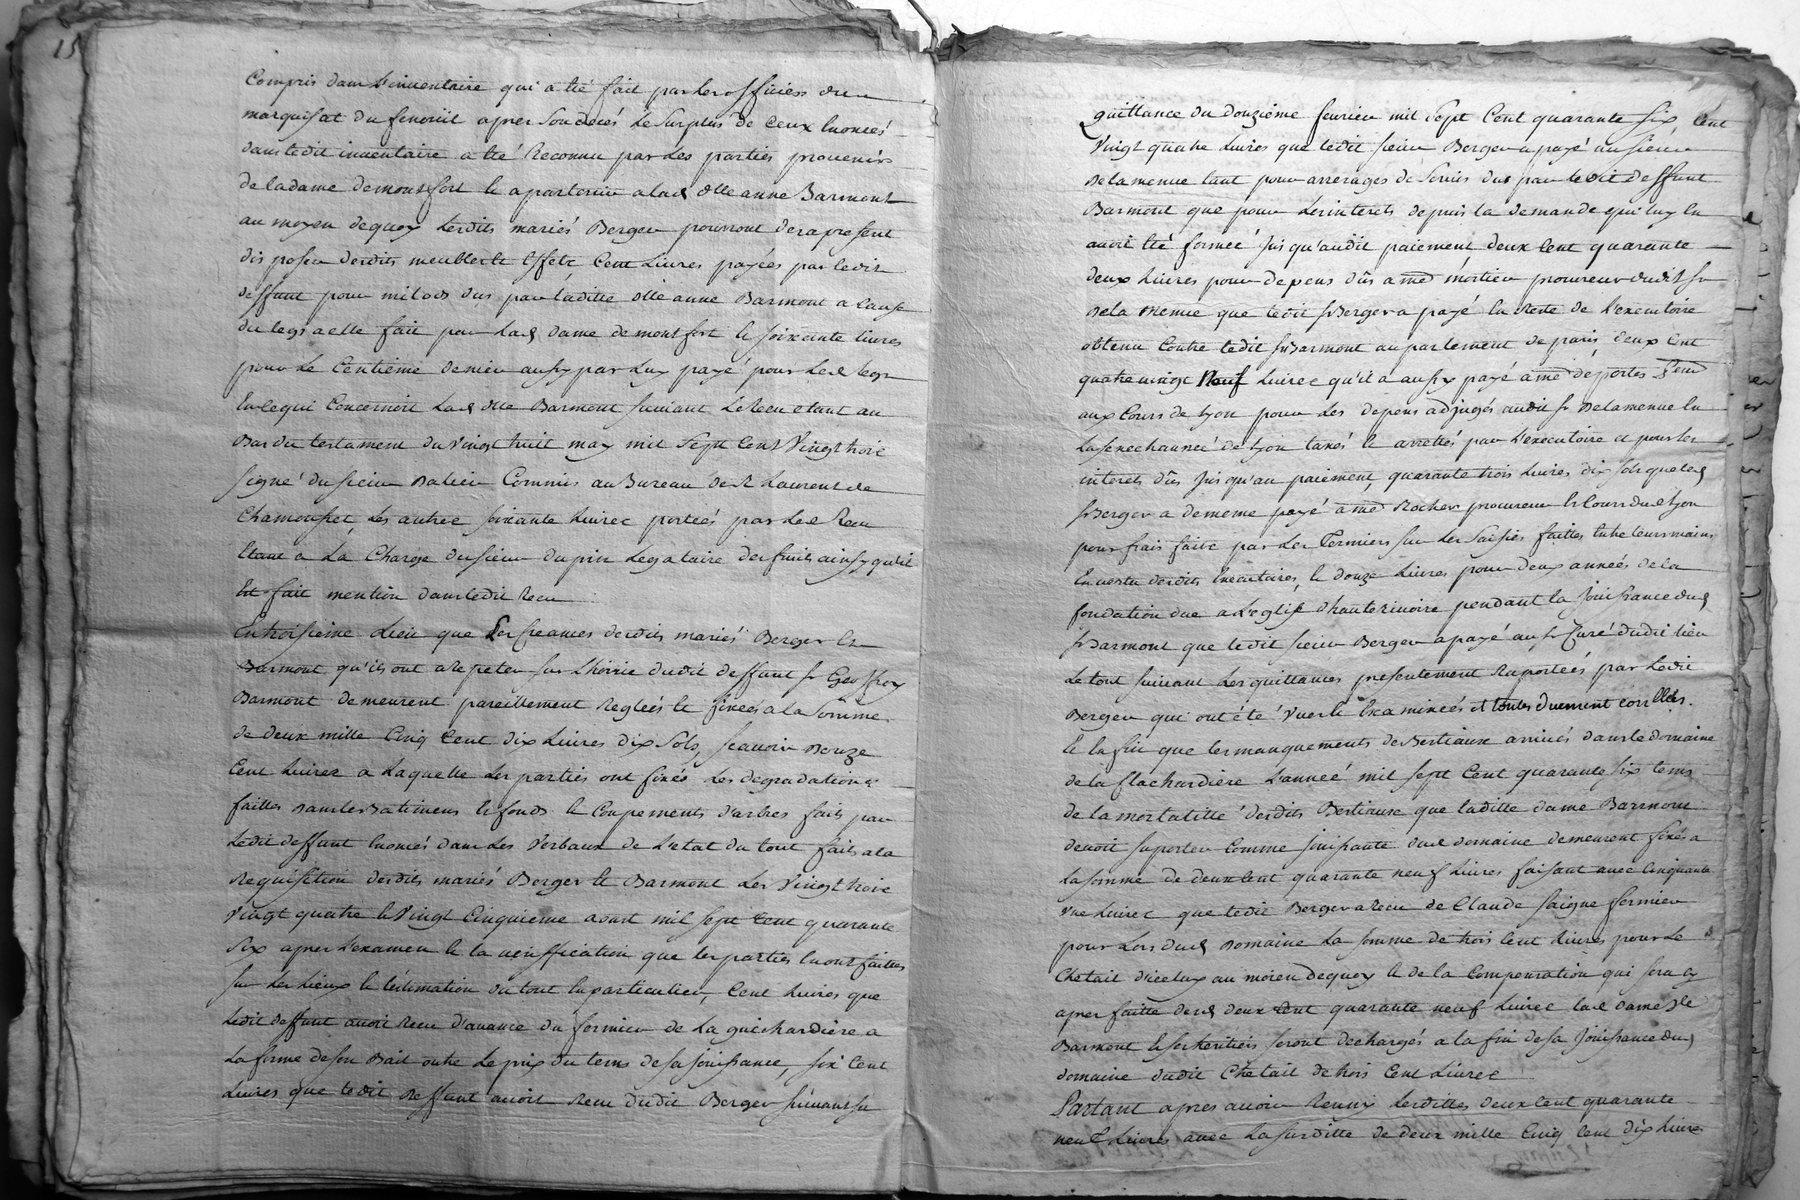 15
Compris dans l'inventaire qui a eté fait par les officiers du
marquisat du fenoüil apres son decés le surplus de ceux enoncés
dans ledit inventaire a eté reconnu par les parties provenir
de la dame de montfort et apartenir a lad dlle anne Barmont
au moyen de quoy lesdits mariés Berger pourront des apresent
disposer desdits meubles et effets, Cent livres payées par ledit
deffunt pour milods dus par laditte dlle anne Barmont a cause
du legs a elle fait par lad dame de montfort et soixante livres
pour le Centième denier aussy par luy payé pour led legs
en ce qui concernoit lad dlle Barmont suivant le recu etant au
Bas du testament du vingt huit may mil sept cent vingt trois
signé du sieur Commis au Bureau de St Laurent de
Chamousset, les autres soixante livres portées par led recu
etant a la charge du sieur dupin légataire des fruits ainsy qu'il
est fait mention dans ledit recu
En troisième lieu que les creances desdits mariés Berger et
Barmont qu'ils ont a repeter sur l'hoirie dudit deffunt sr Geoffroy
Barmont demeurent pareillement reglées et fixées a la somme
de deux mille cinq cent dix livres dix sols, scavoir douze
Cent livres a laquelle les parties ont fixés les degradations
faittes dans les Batimens et fonds et coupements d'arbres faits par
ledit deffunt enoncés dans les verbaux de l'etat du tout faits a la
requisition desdits mariés Berger et Barmont les vingt trois
vingt quatre et vingt cinquieme aoust mil sept cent quarante
six apres l'examen et la veriffication que les parties en ont faittes
sur les lieux et l'estimation du tout en particulier, Cent livres que
ledit deffunt avoit recu d'avance du fermier de la guichardière a
la forme de son Bail outre le prix du tems de sa jouissance, six cent
livres que ledit deffunt avoit recu dudit Berger suivant sa
quittance du douzième fevrier mil sept cent quarante six Cent
vingt quatre livres que ledit sieur Berger a payé au sieur
Delamenue tant pour arrerages de servis dus par ledit deffunt
Barmont que pour les interets depuis la demande qui luy en
avoit eté formée jusqu'audit paiement deux cent quarante
deux livres pour depens dûs a me mortier procureur dudit sr
Dela menue que ledit sr Berger a payé en reste de l'executoire
obtenu Contre ledit sr Barmont au parlement de paris, deux cent
quatre vingt neuf livres qu'il a aussy payé a me deportes
aux Cours de lyon pour les depens adjugés audit sr Delamenue en
la senechaussée de lyon taxés et arrettés par l'executoire et pour les
interets dûs jusqu'au paiement, quarante trois livres dix sols que led
sr Berger a de meme payé a me Rocher procureur es Cours de lyon
pour frais faits par les fermiers sur les saisies faittes entre leurs mains
en vertu desdits executoires, et douze livres pour deux années de la
fondation due a l'eglise d'hauterivoire pendant la jouissance dud
sr Barmont que ledit sieur Berger a payé au sr Curé dudit lieu
le tout suivant les quittances presentement raportées par ledit
Berger qui ont été vues et examinées et toutes duement
et en fin que les manquements de Bestiaux arrivés dans le domaine
de la flachardière l'année mil sept cent quarante six tems
de la mortalitté desdits Bestiaux que laditte dame Barmont
devoit suporter comme jouissante dud domaine demeurent fixés a
la somme de deux cent quarante neuf livres faisant avec cinquante
une livres que ledit Berger a recu de Claude Saigne fermier
pour lors dud domaine la somme de trois cent livres pour le
Chetail d'iceluy au moien de quoy et de la compensation qui sera cy
apres faitte desd deux cent quarante neuf livres lad dame de
Barmont et ses heritiers seront dechargés a la fin de sa jouissance dud
domaine dudit Chetail de trois Cent livres
Partant apres avoir reuny lesdittes deux cent quarante
neuf livres avec la susditte de deux mille cinq cent dix livres